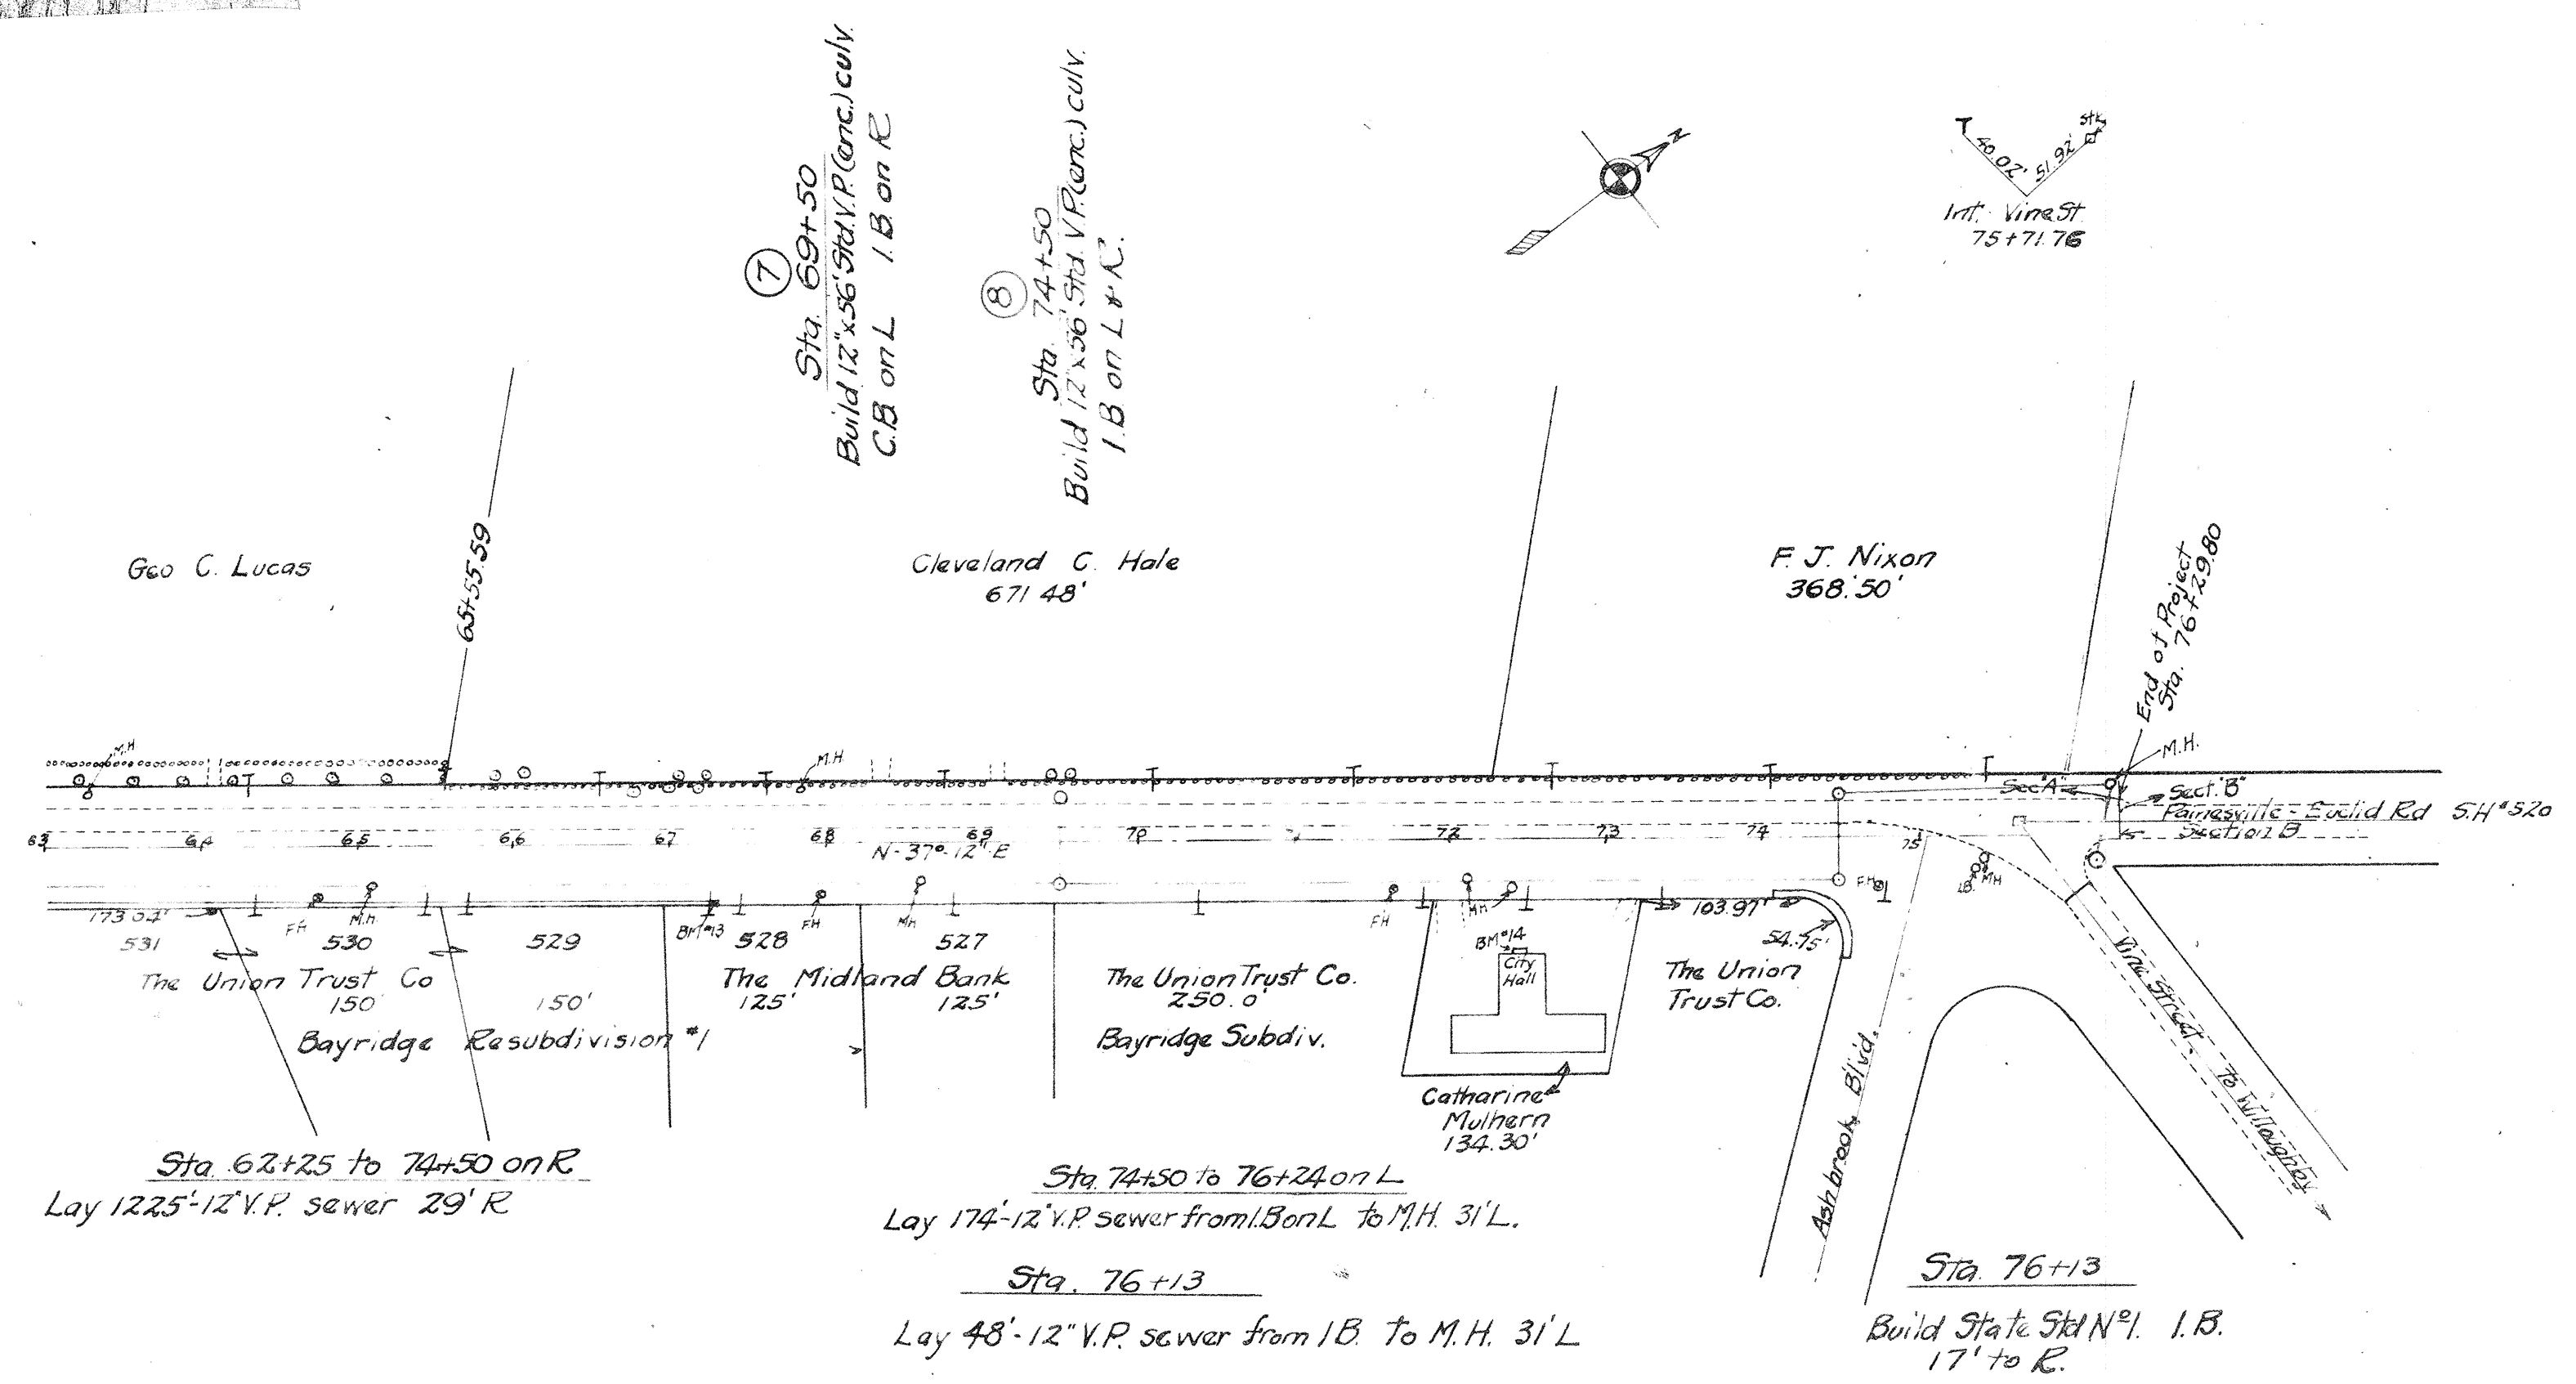 7
Sta. 69+50
Build 12"x56' Std. V.P. (enc.) culv.
C.B. on L I.B. on R
8
Sta. 74+50
Build 12"x56' Std. V.P. (enc.) culv.
I.B. on L & R.
N
T
stk
40.02'
51.92'
Int. Vine St.
75+71.76
Geo C. Lucas
65+55.59
Cleveland C. Hale
671 48'
F. J. Nixon
368.50'
End of Project
Sta. 76+29.80
M.H.
M.H.
M.H.
Sec "A"
Sect. "B"
Painesville - Euclid Rd S.H #520
Section B
63 64 65 66 67 68 69 70 72 73 74 75
N-37°-12" E
F.H.
I.B.
MH
FH
M.H.
BM #13
FH
MH
FH
MH
103.97'
54.75'
531
530
529
528
527
BM #14
City
Hall
The Union Trust Co
150'
150'
The Midland Bank
125'
125'
The Union Trust Co.
250.0'
The Union
Trust Co.
Bayridge Resubdivision #1
Bayridge Subdiv.
Catharine
Mulhern
134.30'
Ashbrook Blvd.
Vine Street
To Willoughby
Sta. 62+25 to 74+50 on R
Lay 1225'-12" V.P. sewer 29' R
Sta. 74+50 to 76+24 on L
Lay 174'-12" V.P. sewer from I.B on L to M.H. 31' L.
Sta. 76+13
Lay 48'-12" V.P. sewer from I B. to M.H. 31' L
Sta. 76+13
Build State Std Nº1. I.B.
17' to R.